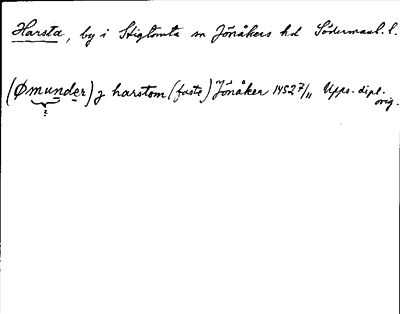 Harsta, by i Stigtomta sn Jönåkers hd Södermanl. l.
(Ømunder) j harstom (faste) Jönåker 1452 7/11 Upps. dipl. orig.
?